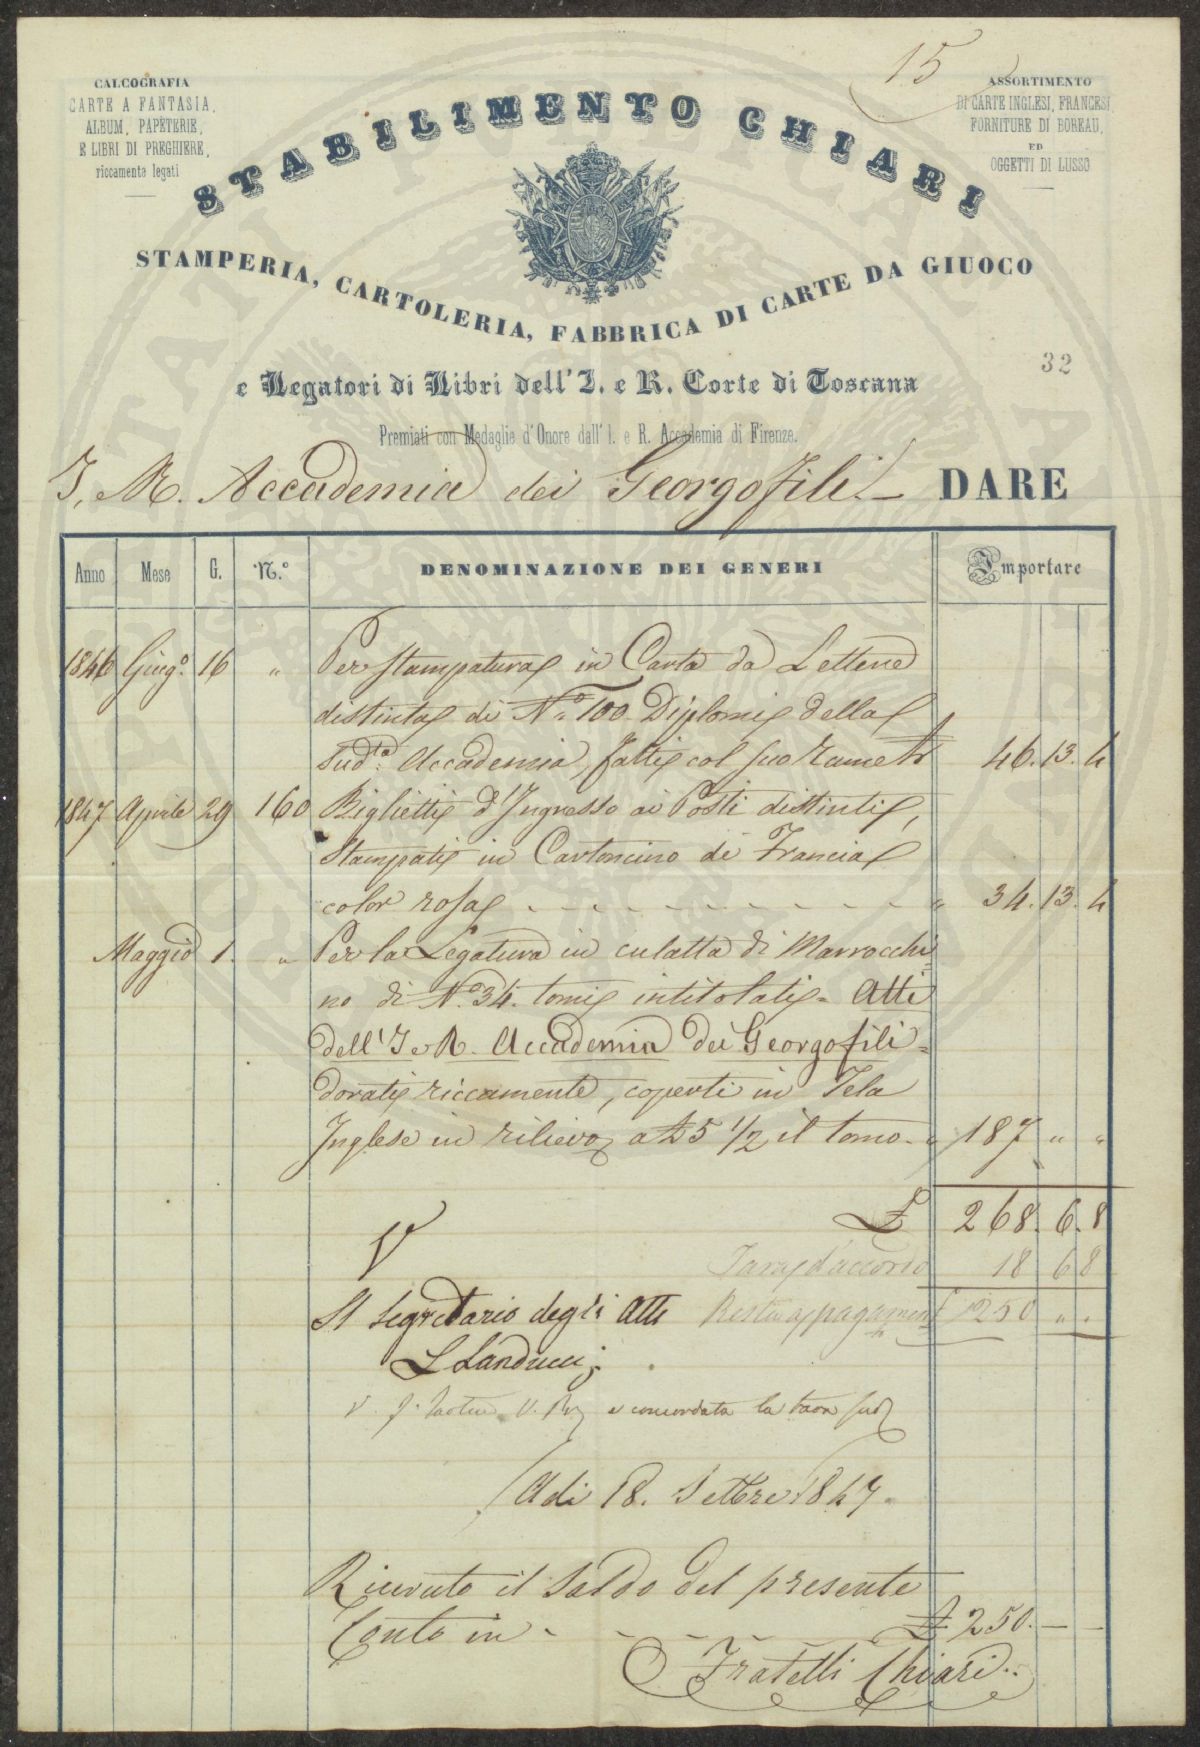 15
CALCOGRAFIA
CARTE A FANTASIA,
ALBUM, PAPÈTERIE,
E LIBRI DI PREGHIERE,
riccamente legati
ASSORTIMENTO
DI CARTE INGLESI, FRANCESI
FORNITURE DI BOREAU,
ED
OGGETTI DI LUSSO
STABILIMENTO CHIARI
STAMPERIA, CARTOLERIA, FABBRICA DI CARTE DA GIUOCO
32
e Legatori di Libri dell'I. e R. Corte di Toscana
Premiati con Medaglie d'Onore dall'I. e R. Accademia di Firenze.
I, R. Accademia dei Georgofili DARE
Anno Mese G. N.º DENOMINAZIONE DEI GENERI Importare
1846 Giug.º 16 " Per Stampatura in Carta da Lettere
distinta di N.º 100 Diplomi della
Sud.ta Accademia, fatti col suo rame £ 46. 13. 4
1847 Aprile 29 160 Biglietti d'Ingresso ai Posti distinti,
Stampati in Cartoncino di Francia
color rosa " 34. 13. 4
Maggio 1. " Per la Legatura in culatta di Marrocchi-
no di N.º 34. tomi intitolati = Atti
dell'I e R. Accademia dei Georgofili =
dorati riccamente, coperti in Tela
Inglese in rilievo, a £ 5 1/2 il tomo - " 187 " "
£ 268. 6. 8
V
Tara d'accordo 18 6 8
Il Segretario degli Atti Resta a pagamento £ 250 " "
L Landucci
V. e concordata la tara sud
Adi 18. Settbre 1847.
Ricevuto il Saldo del presente
Conto in - - - £ 250. — —
Fratelli Chiari